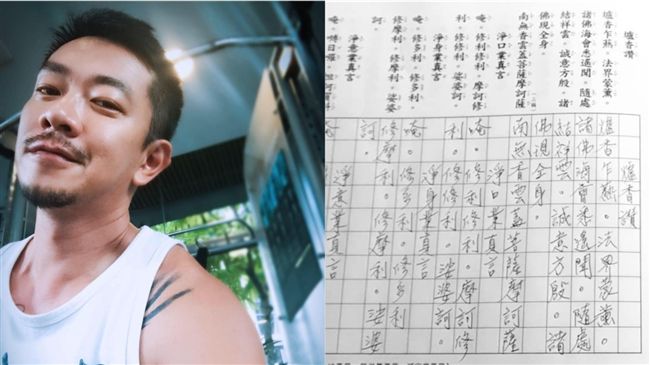 爐香讚
爐香乍爇。法界蒙薰。
諸佛海會悉遙聞。隨處
結祥雲。誠意方殷。諸
佛現全身。
南無香雲蓋菩薩摩訶薩
淨口業真言
唵。修利修利。摩訶修
利。修修利。娑婆訶。
淨身業真言
唵。修多利。修多利。
修摩利。修摩利。娑婆
訶。
淨意業真言
爐香讚
爐香乍爇。法界蒙薰。
諸佛海會悉遙聞。隨處
結祥雲。誠意方殷。諸
佛現全身。
南無香雲蓋菩薩摩訶薩
淨口業真言
唵。修利修利。摩訶修
利。修修利。娑婆訶
淨身業真言
唵。修多利。修多利
修摩利。修摩利。娑婆
訶
淨意業真言
唵